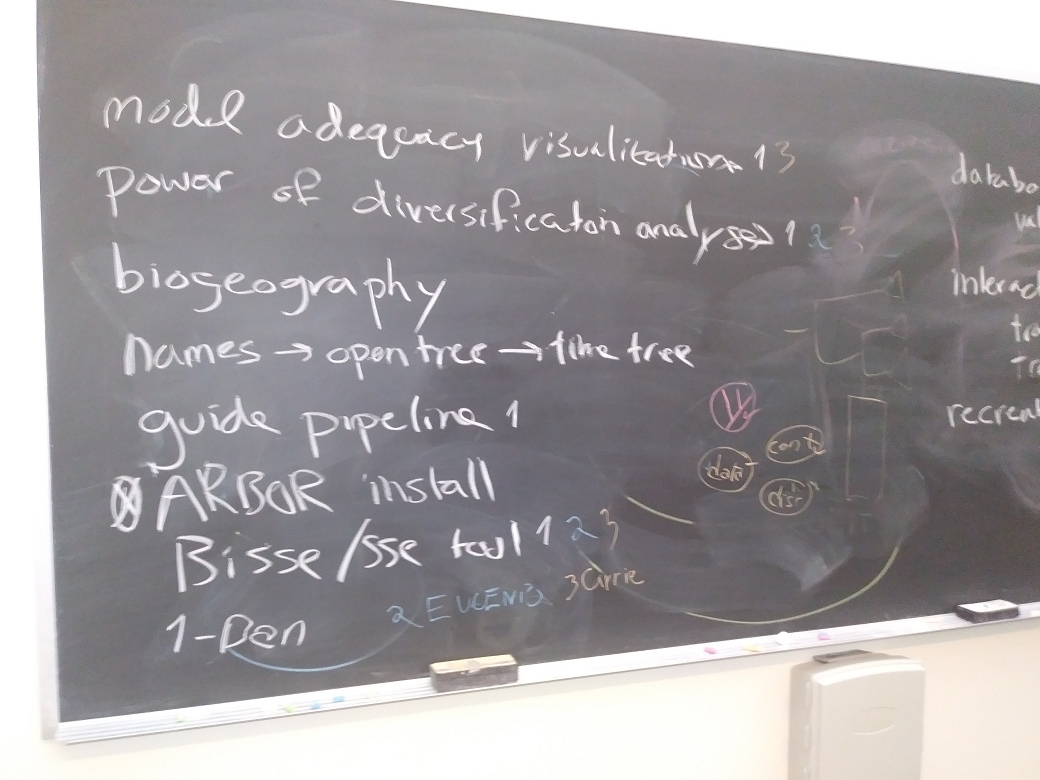 model adequacy visualitations 1 3
power of diversificaton analyses 1 2 3
biogeography
names → opentree → time tree
guide pipeline 1
ARBOR install
Bisse/sse tool 1 2 3
1-Ben
2 EUGENIO
3 Carrie
cont
data
disc
databa
val
interac
tra
tra
recreat